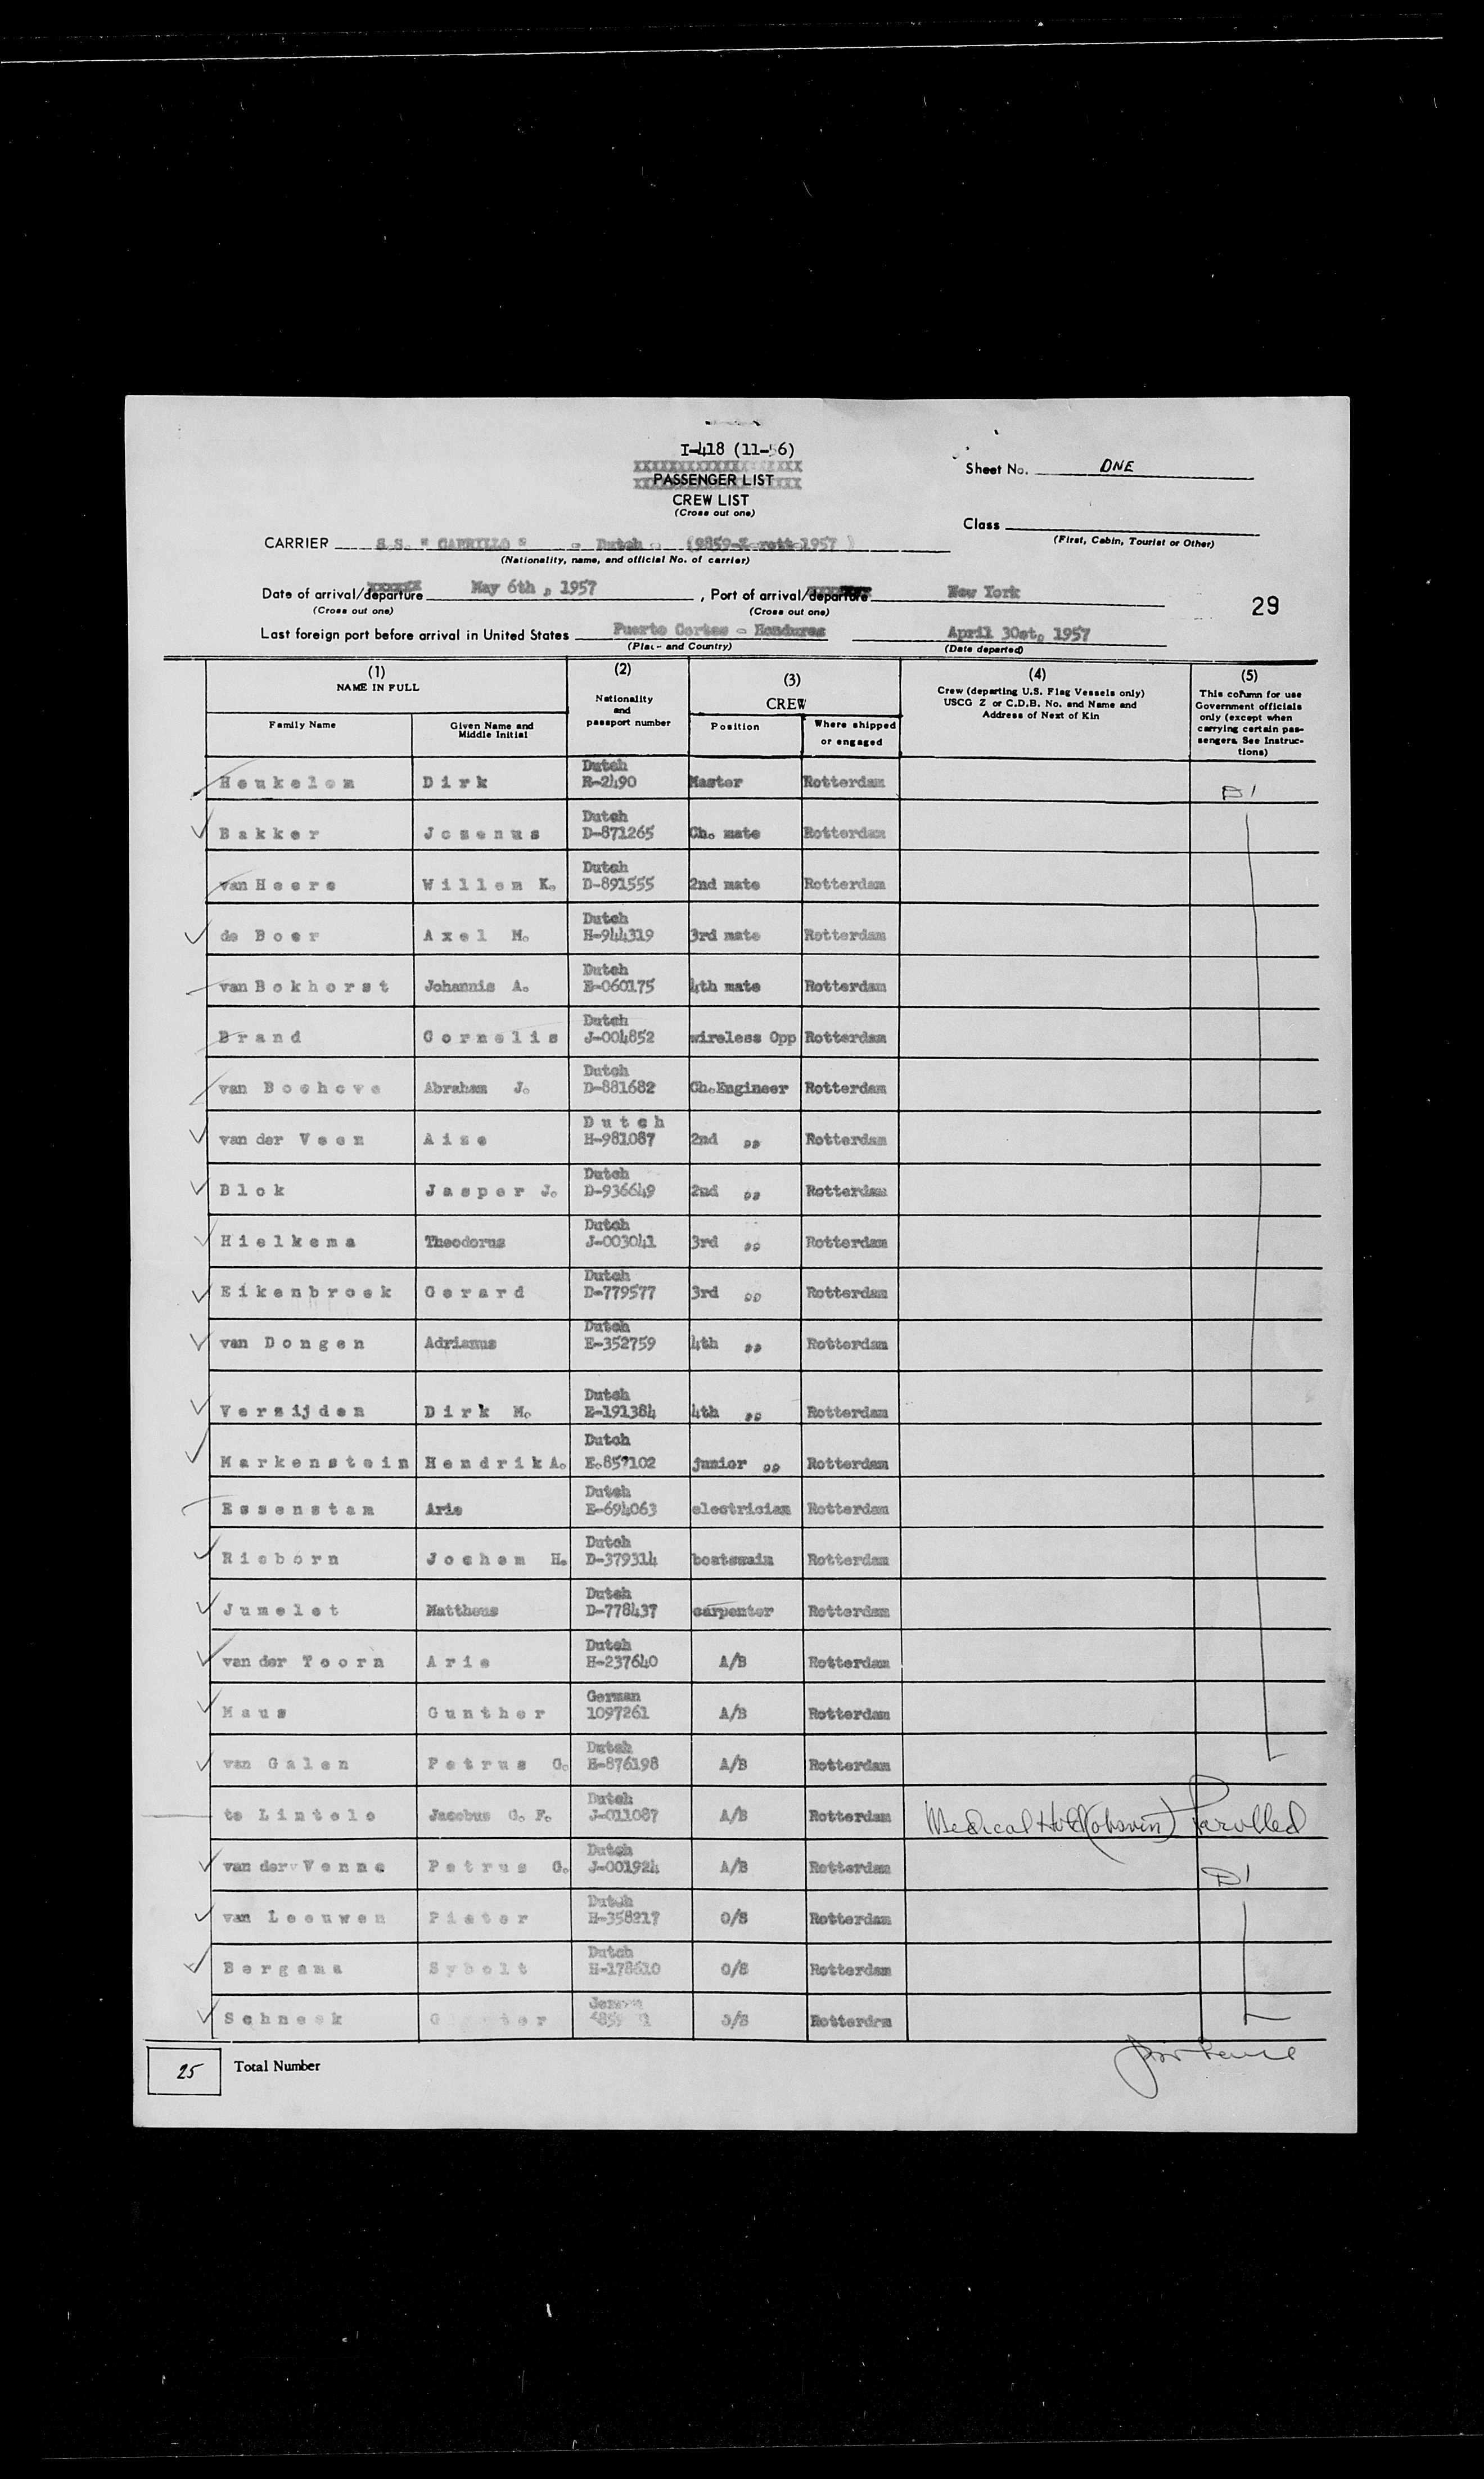 I-418 (11-56)
Sheet No. ONE
PASSENGER LIST
CREW LIST
(Cross out one)
Class
(First, Cabin, Tourist or Other)
CARRIER S.S. " CARRILLO " - Dutch - (9859-Z-rott-1957 )
(Nationality, name, and official No. of carrier)
Date of arrival/departure May 6th, 1957, Port of arrival/departure New York
(Cross out one) (Cross out one)
29
Last foreign port before arrival in United States Puerto Cortes - Honduras April 30st, 1957
(Place and Country) (Date departed)
(1) (2) (3) (4) (5)
NAME IN FULL
Nationality and passport number
CREW
Crew (departing U.S. Flag Vessels only)
USCG Z or C.D.B. No. and Name and
Address of Next of Kin
This column for use
Government officials
only (except when
carrying certain pas-
sengers. See Instruc-
tions)
Family Name Given Name and Middle Initial Position Where shipped or engaged
Heukelom Dirk Dutch R-2490 Master Rotterdam D1
Bakker Josenus Dutch D-871265 Ch. mate Rotterdam
van Heere Willem K. Dutch D-891555 2nd mate Rotterdam
de Boer Axel M. Dutch H-944319 3rd mate Rotterdam
van Bokhorst Johannis A. Dutch E-060175 4th mate Rotterdam
Brand Cornelis Dutch J-004852 wireless Opp Rotterdam
van Boshove Abraham J. Dutch D-881682 Ch.Engineer Rotterdam
van der Veen Aise Dutch H-981087 2nd ,, Rotterdam
Blok Jasper J. Dutch D-936649 2nd ,, Rotterdam
Hielkema Theodorus Dutch J-003041 3rd ,, Rotterdam
Eikenbroek Gerard Dutch D-779577 3rd ,, Rotterdam
van Dongen Adrianus Dutch E-352759 4th ,, Rotterdam
Versijden Dirk M. Dutch E-191384 4th ,, Rotterdam
Markenstein Hendrik A. Dutch E.857102 junior ,, Rotterdam
Essenstam Arie Dutch E-694063 electrician Rotterdam
Rieborn Jochem H. Dutch D-379314 boatswain Rotterdam
Jumelet Mattheus Dutch D-778437 carpenter Rotterdam
van der Toorn Arie Dutch H-237640 A/B Rotterdam
Maus Gunther German 1097261 A/B Rotterdam
van Galen Petrus G. Dutch H-876198 A/B Rotterdam
te Lintelo Jacobus G. F. Dutch J-011087 A/B Rotterdam Medical Hold Parolled
van der Venne Petrus G. Dutch J-001924 A/B Rotterdam D1
van Leeuwen Pieter Dutch H-358217 O/S Rotterdam
Bergsma Sybolt Dutch H-178610 O/S Rotterdam
Schneek O/S Rotterdam
25 Total Number